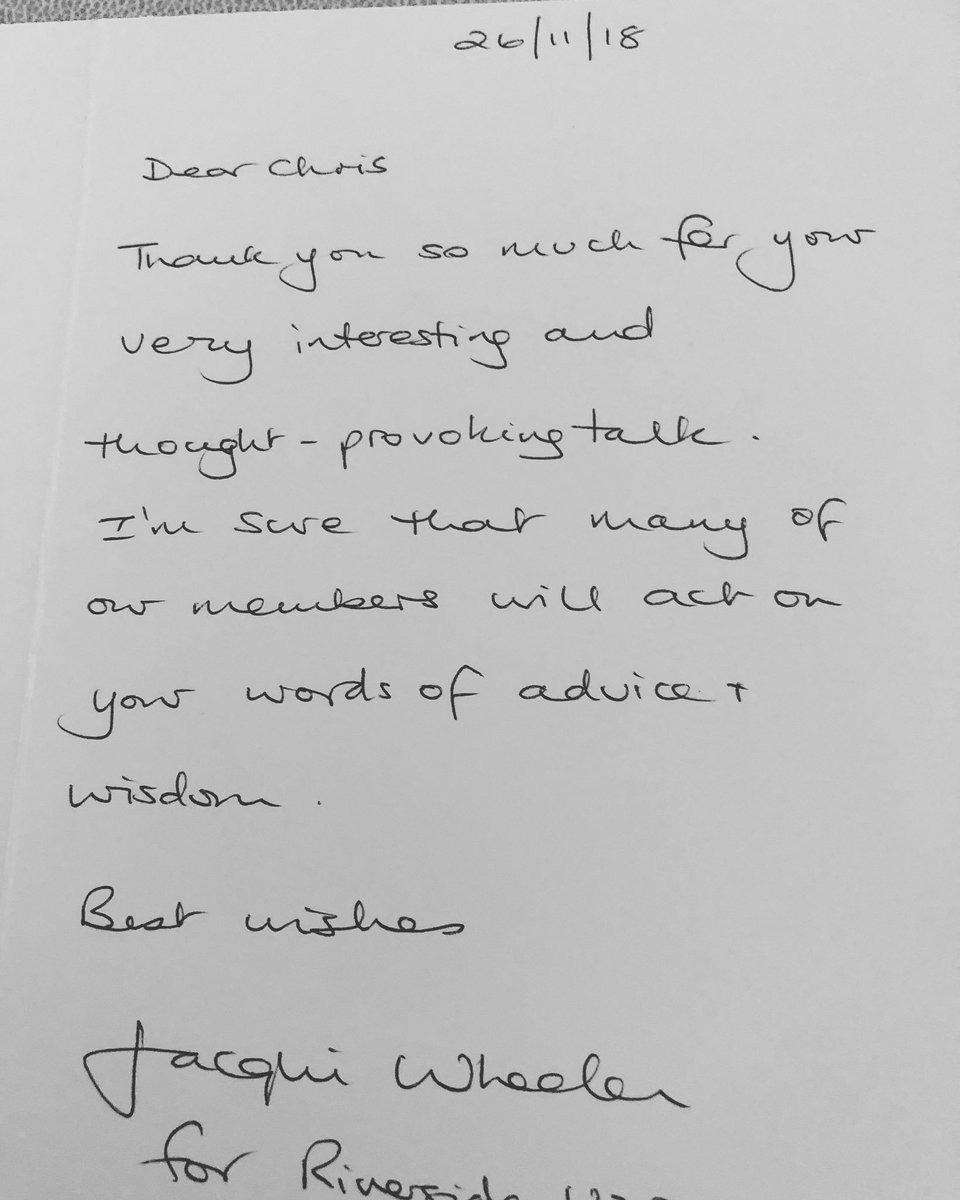 26/11/18
Dear Chris
Thank you so much for your
very interesting and
thought-provoking talk.
I'm sure that many of
our members will act on
your words of advice +
wisdom.
Best wishes
Jacqui Wheeler
for Riverside